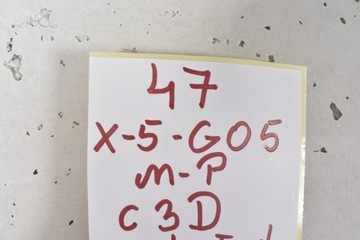 47
X-5-G05
m-P
C3D